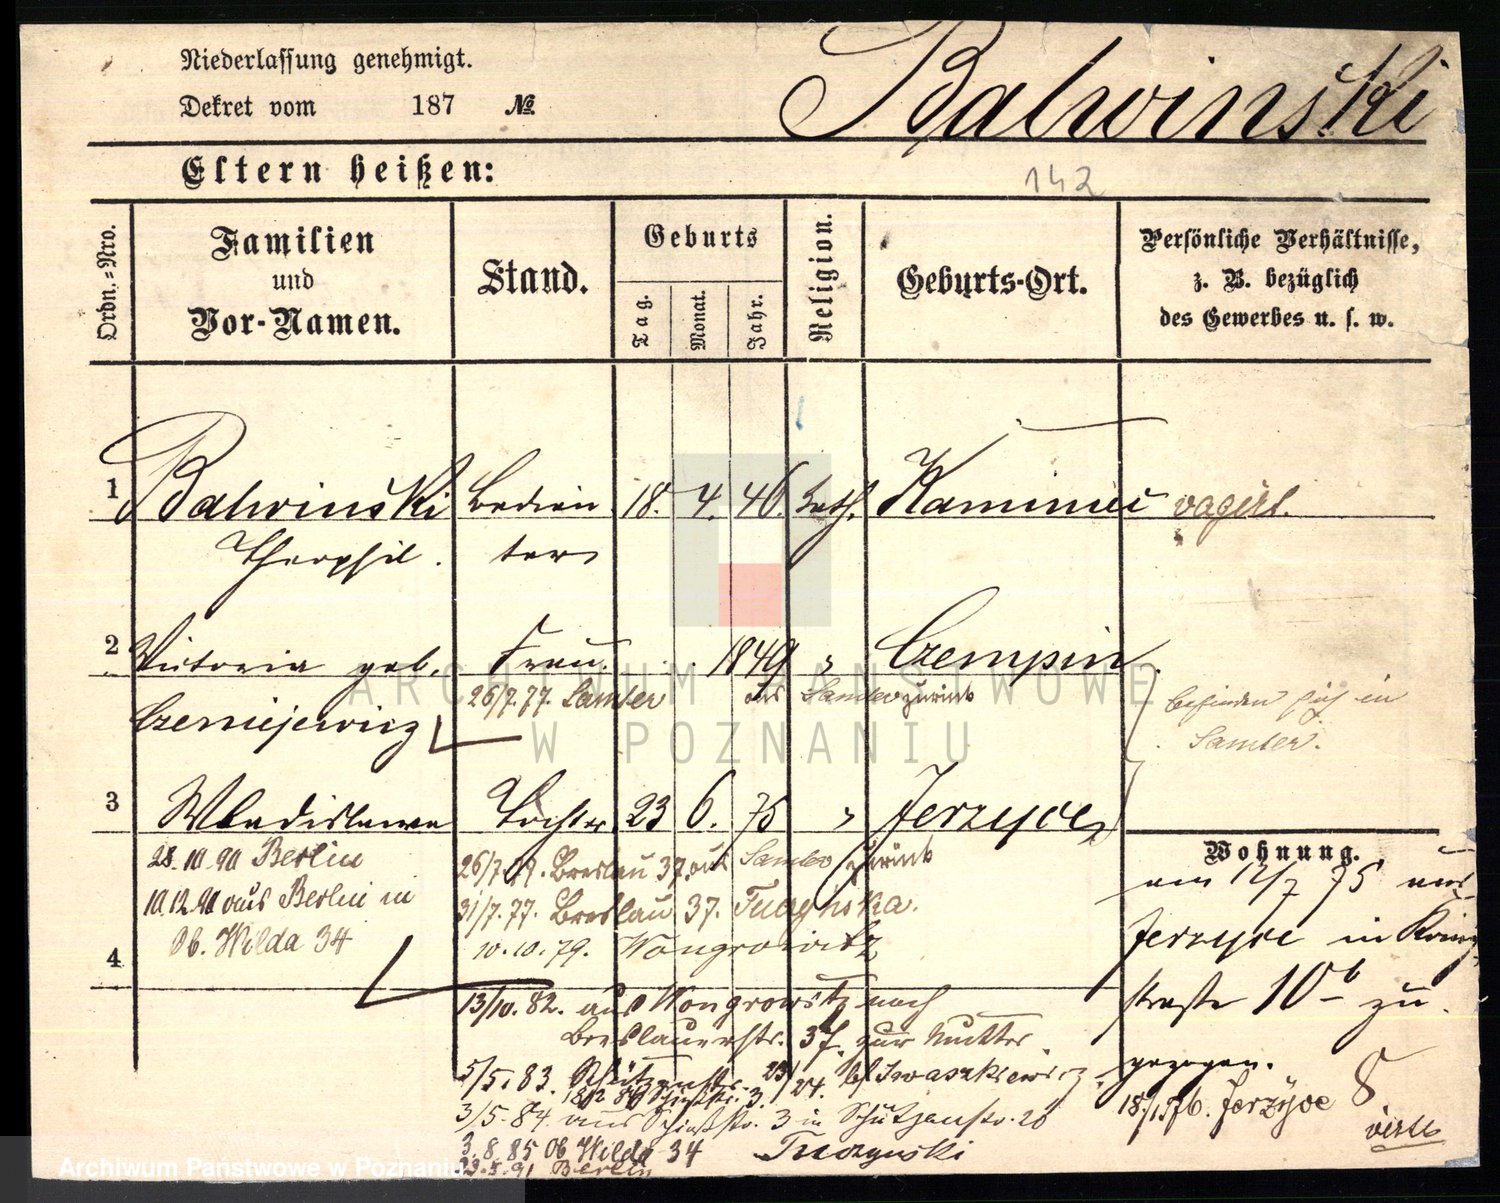 Niederlassung genehmigt.
Dekret vom 187 №
Balwinski
Eltern heißen:
142
Ordn.=Nro.
Familien
und
Vor-Namen.
Stand.
Geburts
Tag.
Monat.
Jahr.
Religion.
Geburts-Ort.
Persönliche Verhältnisse,
z. B. bezüglich
des Gewerbes u. s. w.
1 Balwinski Bedien 18. 4. 46. kath. Kamimiec vagirt.
Theophil. ter
2 Victoria geb. Frau. 1849 " Czempin.
26/7.77. Samter aus Samter zurück
Czeniejewicz
befinden sich in
Samter.
3 Wladislawa Tochter 23 6. 75 " Jerzyce
Wohnung.
28.10.90 Berlin
26/7.77. Breslau 37. aus Samter zurück
am 12/7 75 aus
10.12.90 aus Berlin in
31/7.77. Breslau 37. Tuczynska.
Ob. Wilda 34
Jerzyce in
4
10.10.79. Wongrowitz
straße 10b zu
13/10.82. aus Wongrowitz nach
Breslauerstr. 37. zur Mutter
gezogen.
5/5.83. Schützenstr. 23/24. b/ Iwaszkiewicz
Schießstr. 3.
18/1.76. Jerzyce 8
3/5.84. aus Schießstr. 3 in Schützenstr. 26
verte
3.8.85 Ob Wilda 34 Tuczynski
23.5.91 Berlin
ARCHIWUM PAŃSTWOWE
W POZNANIU
Archiwum Państwowe w Poznaniu